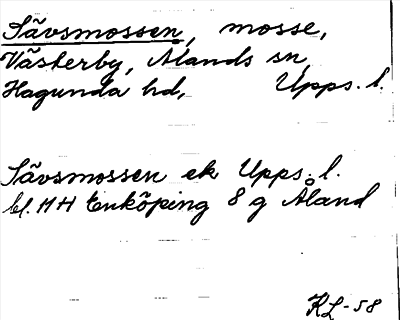 Sävsmossen, mosse,
Västerby, Ålands sn,
Hagunda hd, Upps. l.
Sävsmossen ek Upps. l.
bl. 11H Enköping 8 g Åland
KL-58